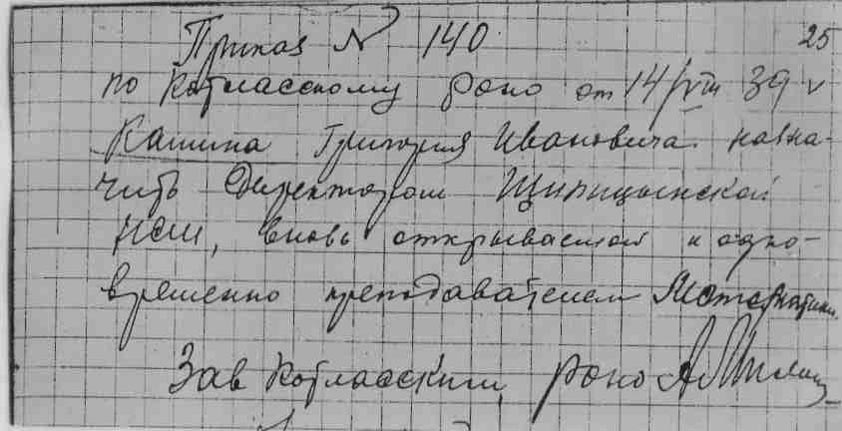 Приказ N 140. 25
по Котласскому роно от 14/VIII 39 г
Кашина Григория Ивановича назна-
чить Директором Шипицынской
НСШ, вновь открываемой и одно-
временно преподавателем Математики.
Зав Котласским роно